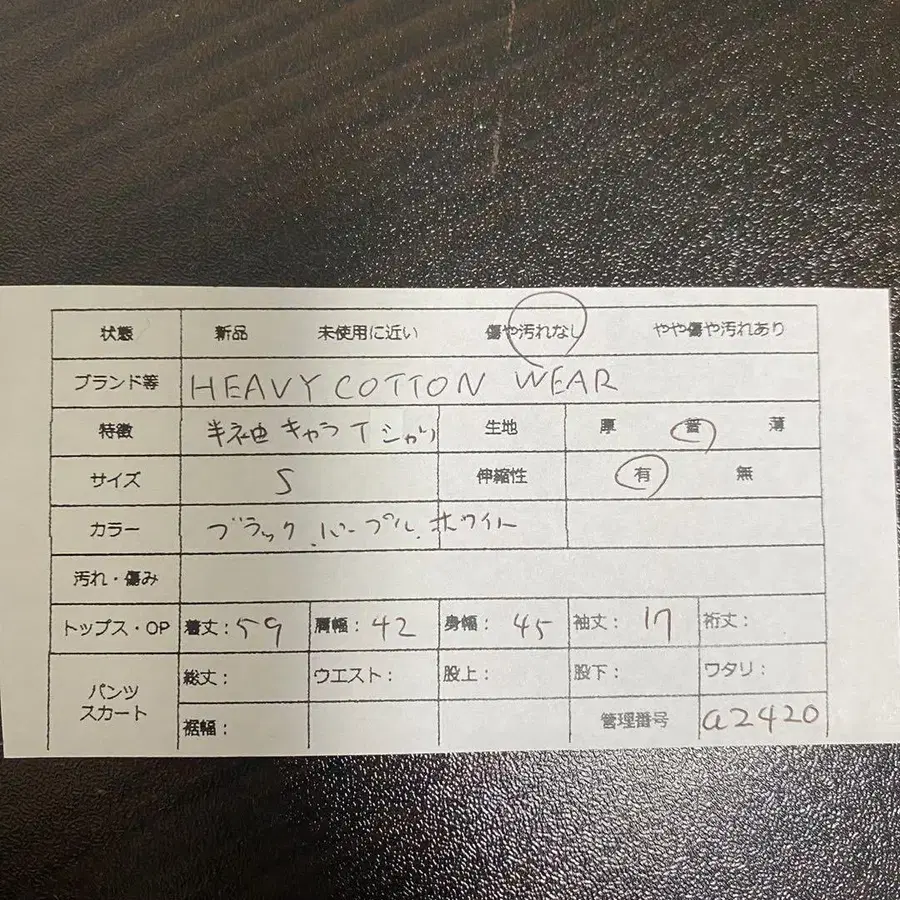 状態 新品 未使用に近い 傷や汚れなし やや傷や汚れあり
ブランド等 HEAVY COTTON WEAR
特徴 半袖キャラTシャツ 生地 厚 普 薄
サイズ S 伸縮性 有 無
カラー ブラック.パープル.ホワイト
汚れ・傷み
トップス・OP 着丈:59 肩幅:42 身幅:45 袖丈:17 裄丈:
パンツ スカート 総丈: ウエスト: 股上: 股下: ワタリ:
裾幅: 管理番号 a2420